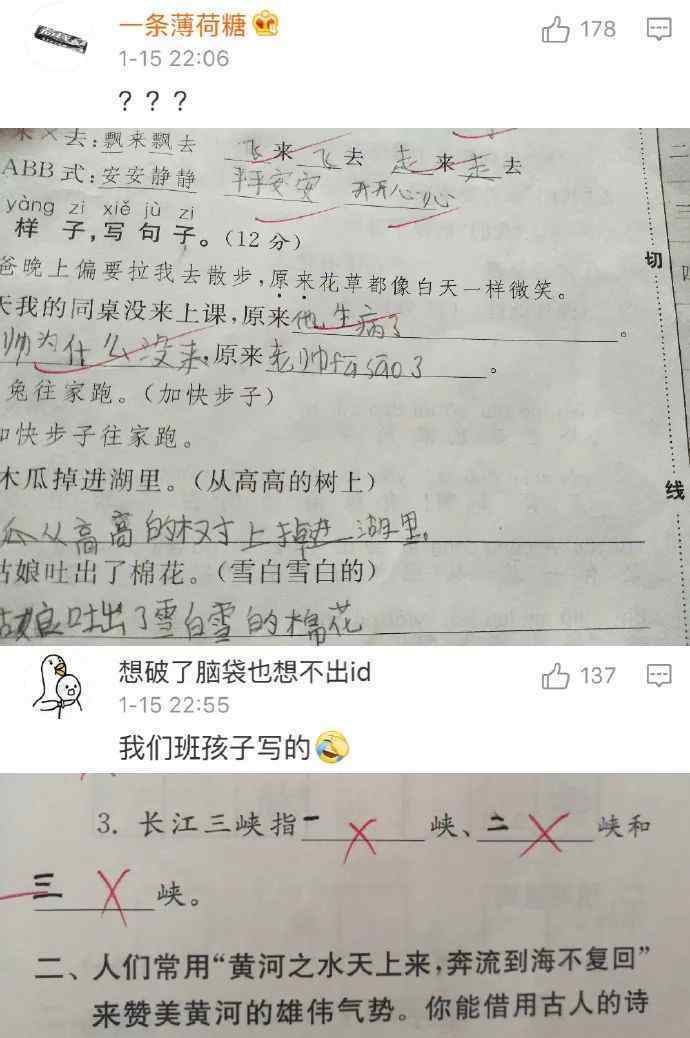 一条薄荷糖
178
1-15 22:06
？？？
来×去：飘来飘去 飞来飞去 走来走去
ABB式：安安静静 平平安安 开开心心
yàng zi xiě jù zi
样子，写句子。（12分）
爸晚上偏要拉我去散步，原来花草都像白天一样微笑。
天我的同桌没来上课，原来他生病了。
帅为什么没来，原来老帅fā sāo了。
兔往家跑。（加快步子）
加快步子往家跑。
木瓜掉进湖里。（从高高的树上）
瓜从高高的树上掉进湖里。
姑娘吐出了棉花。（雪白雪白的）
姑娘吐出了雪白雪的棉花
切
线
二
三
四
想破了脑袋也想不出id
137
1-15 22:55
我们班孩子写的
3. 长江三峡指一峡、二峡和
三峡。
二、人们常用“黄河之水天上来，奔流到海不复回”
来赞美黄河的雄伟气势。你能借用古人的诗